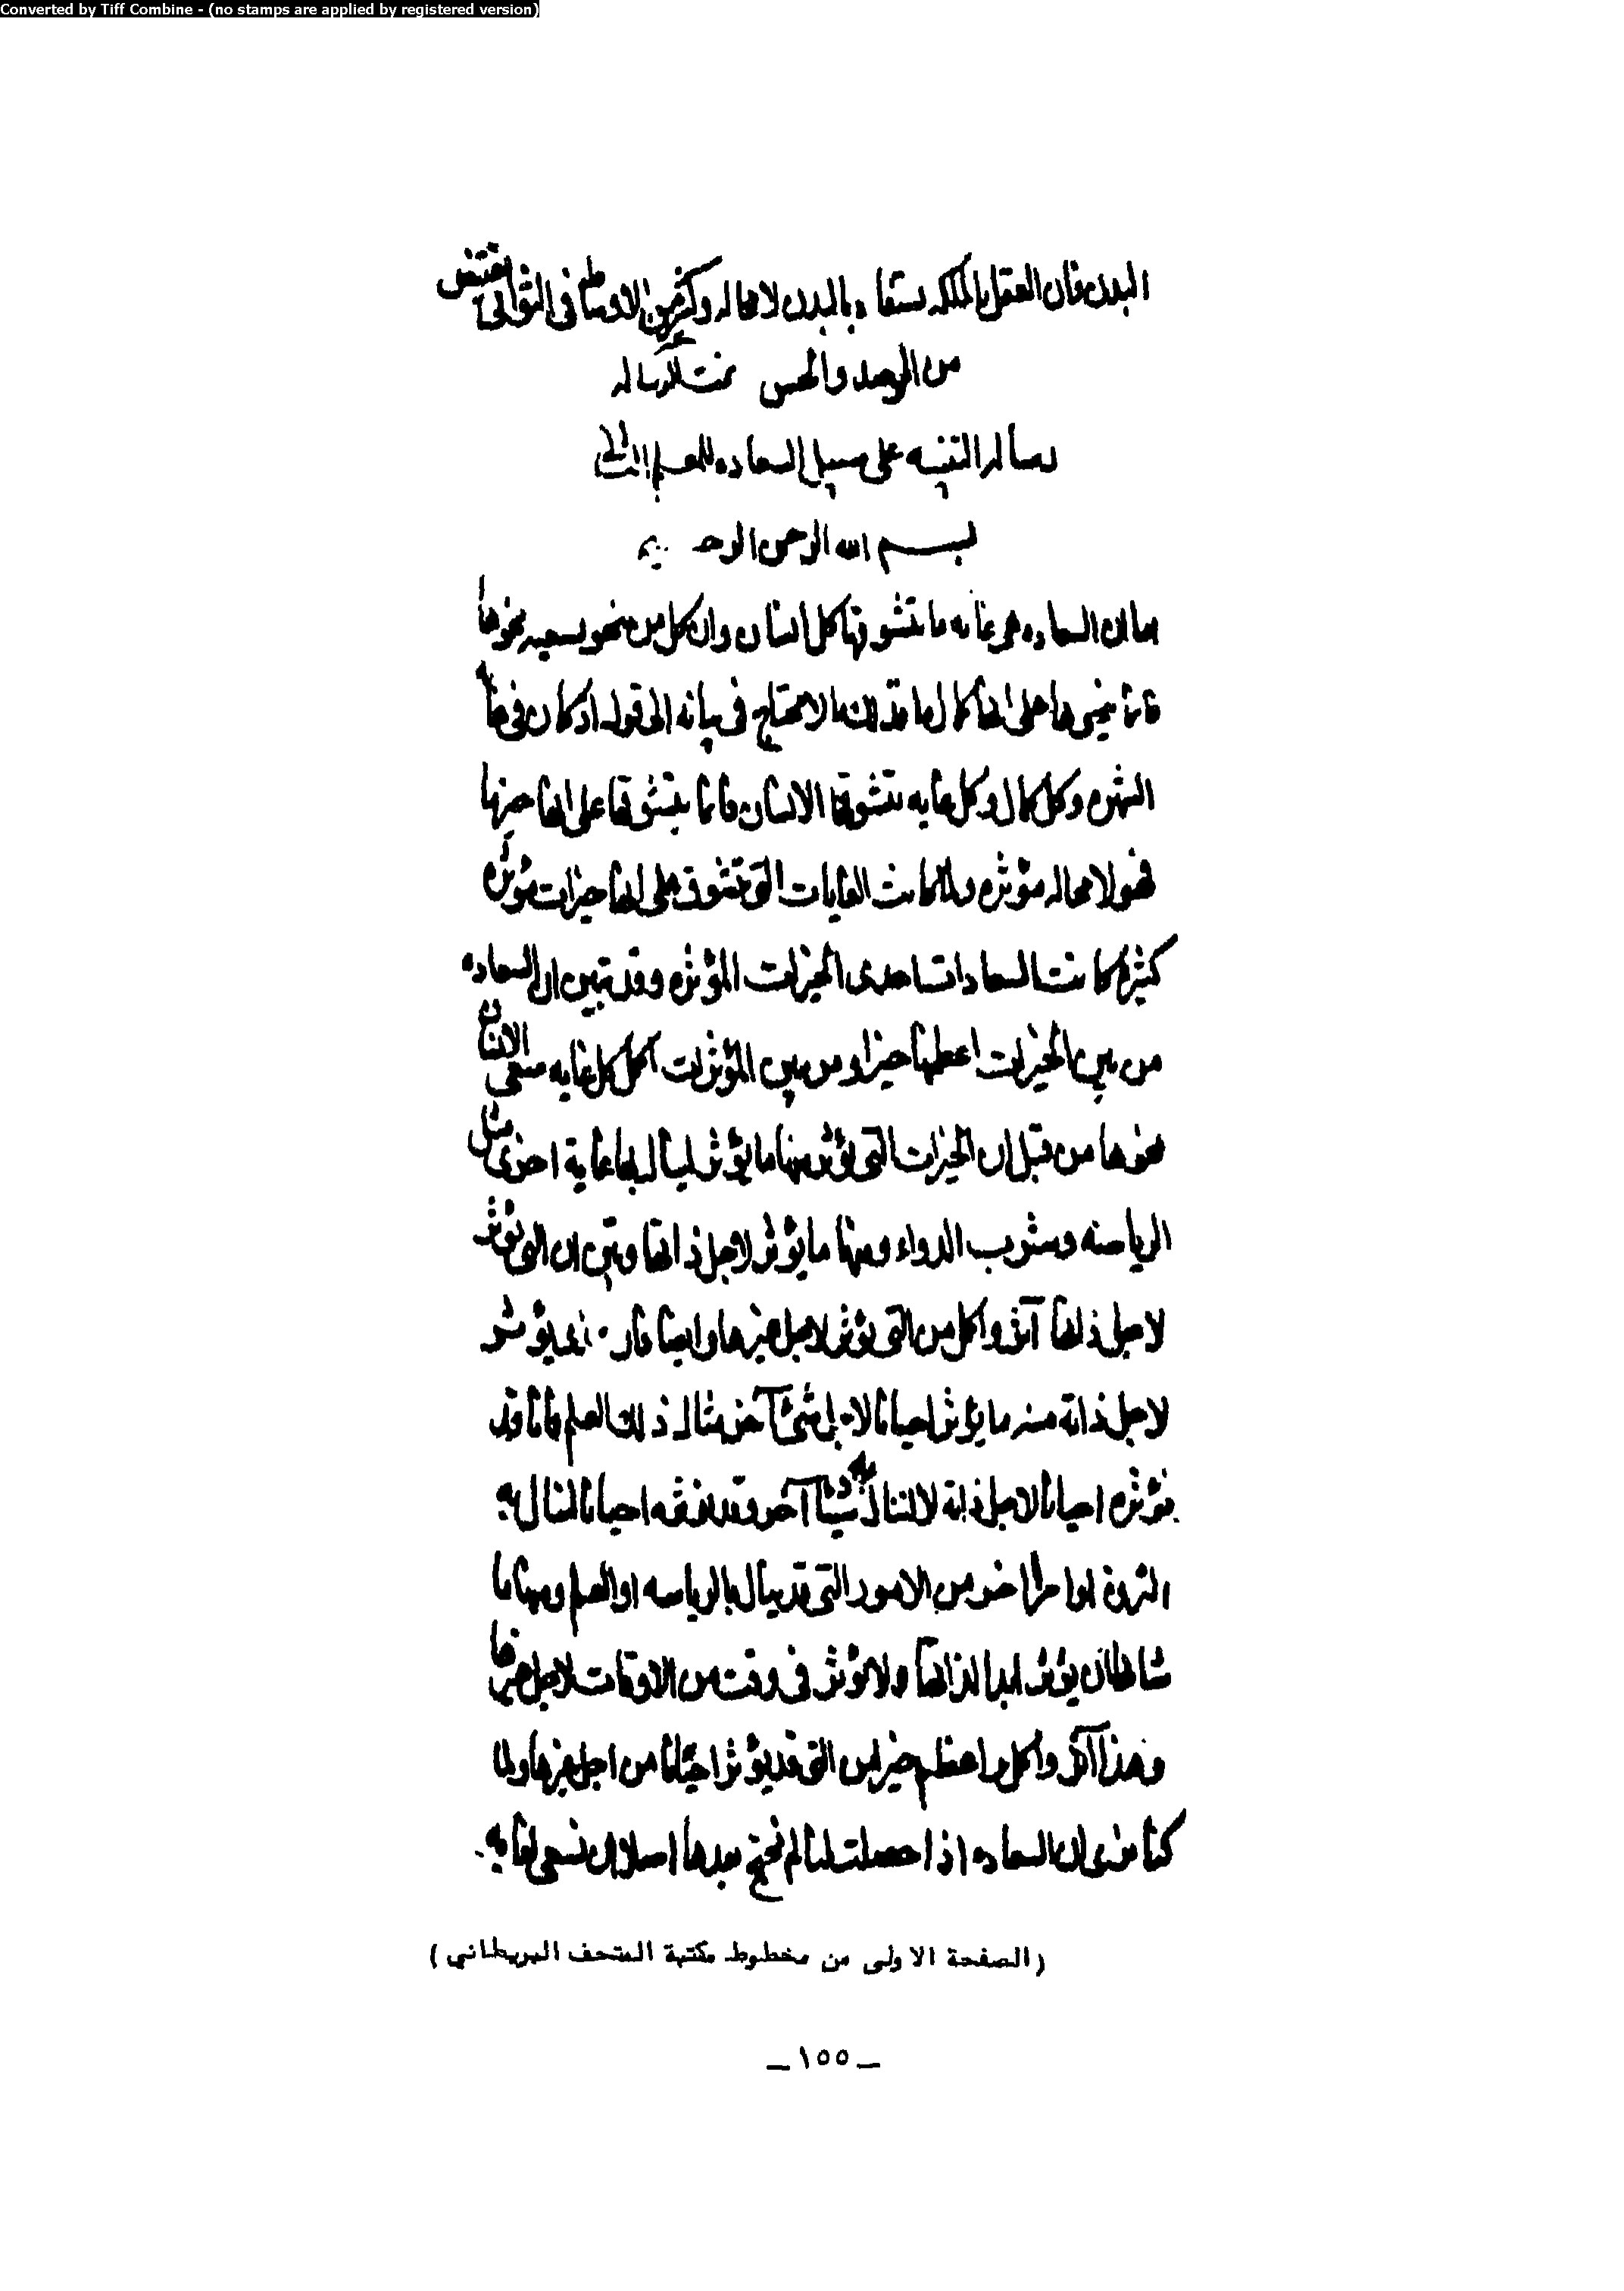 Converted by Tiff Combine - (no stamps are applied by registered version)
البدن فان العقل بالملكه يستفاد بالبدن لا محاله وكثير من الاوساط فى الثوانى تقتنص
من الرصد والحس تمت الرساله
رساله التنبيه على سبيل السعاده للمعلم الثانى
بسم الله الرحمن الرحيم
اما ان السعاده هى غايه ما يتشوقها كل انسان وان كل من ينحو بسعيه نحوها
فانما ينحوها على انها كمال ما فذلك ما لا يحتاج فى بيانه الى قول اذ كان فى غايه
الشهره وكل كمال وكل غايه يتشوقها الانسان فانما يتشوقها على انها خير ما
فهو لا محاله مؤثره ولما كانت الغايات التى تتشوق على انها خيرات مؤثره
كثيره كانت السعادات احدى الخيرات المؤثره وقد تبين ان السعاده
من بين الخيرات اعظمها خيرا ومن بين المؤثرات اكمل كل غايه سعى الانسان
نحوها من قبل ان الخيرات التى تؤثر منها ما يؤثر لينال بها غاية اخرى مثل
الرياضه وشرب الدواء ومنها ما يؤثر لاجل ذاتها وبين ان التى تؤثر
لاجل ذاتها آثر واكمل من التى تؤثر لاجل غيرها وايضا فان يؤثر
لاجل ذاته منه ما يؤثر احيانا لاجل شئ آخر مثال ذلك العلم فانا قد
نؤثره احيانا لاجل ذاته لا لننال به شيئا آخر وقد نؤثره احيانا لننال به
الثروة او امرا اخر من الامور التى قد ينال بالرياسه او العلم ومنها ما
شانها ان يؤثر ابدا لذاتها ولا يؤثر فى وقت من الاوقات لاجل غيرها
وهذا آثر واكمل واعظم خيرا من التى قد يؤثر احيانا من اجل غيرها ولما
كنا نرى ان السعاده اذا حصلت لنا لم نحتج بعدها اصلا ان نسعى لغايه
(الصفحة الاولى من مخطوط مكتبة المتحف البريطاني)
ـ ١٥٥ ـ